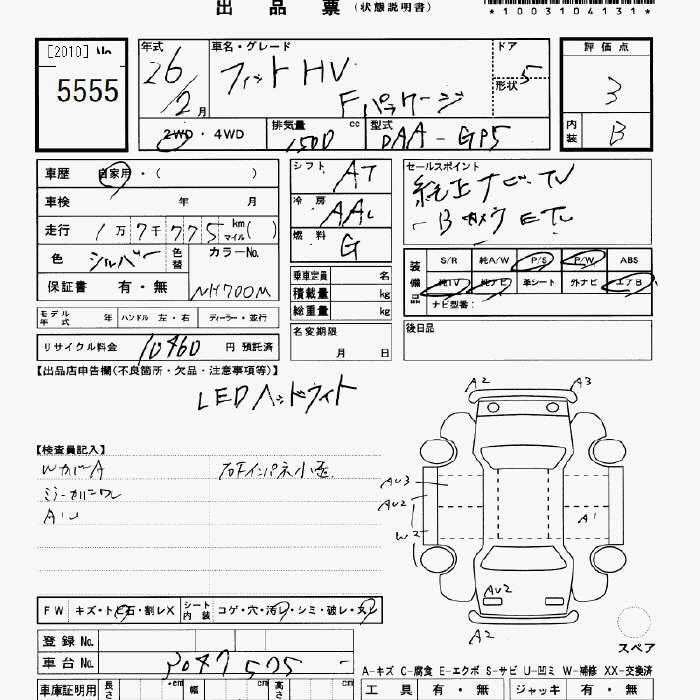 出品票(状態説明書)
*1003104131*
[2010] No
5555
年式
26/2月
車名・グレード
フィットHV
Fパッケージ
ドア
5
形状
評価点
3
内装
B
2WD・4WD
排気量 1500 cc
型式 DAA-GP5
車歴 自家用・( )
車検 年 月
走行 1万7千775 km マイル( )
色 シルバー 色替
カラーNo.
NH700M
保証書 有・無
シフト AT
冷房 AAC
燃料 G
乗車定員 名
積載量 kg
総重量 kg
名変期限
月 日
セールスポイント
純正ナビ・TV
ETC
装備品
S/R 純A/W P/S P/W ABS
純TV 純ナビ 革シート 外ナビ エアB
ナビ型番:
後日品
モデル年式 年 ハンドル 左・右 ディーラー・並行
リサイクル料金 10460 円 預託済
【出品店申告欄(不良箇所・欠品・注意事項等)】
LEDヘッドライト
【検査員記入】
WカバA
AU
A2 A3
AU3
AU2
W2
A1
AU2
A2
スペア
FW キズ・ト ビ石・割レX
シート内装 コゲ・穴・汚レ・シミ・破レ・スレ
登録No.
車台No. 3047575
A-キズ C-腐食 E-エクボ S-サビ U-凹ミ W-補修 XX-交換済
車庫証明用 長さ ・cm 幅 ・cm 高さ
工具 有・無 ジャッキ 有・無